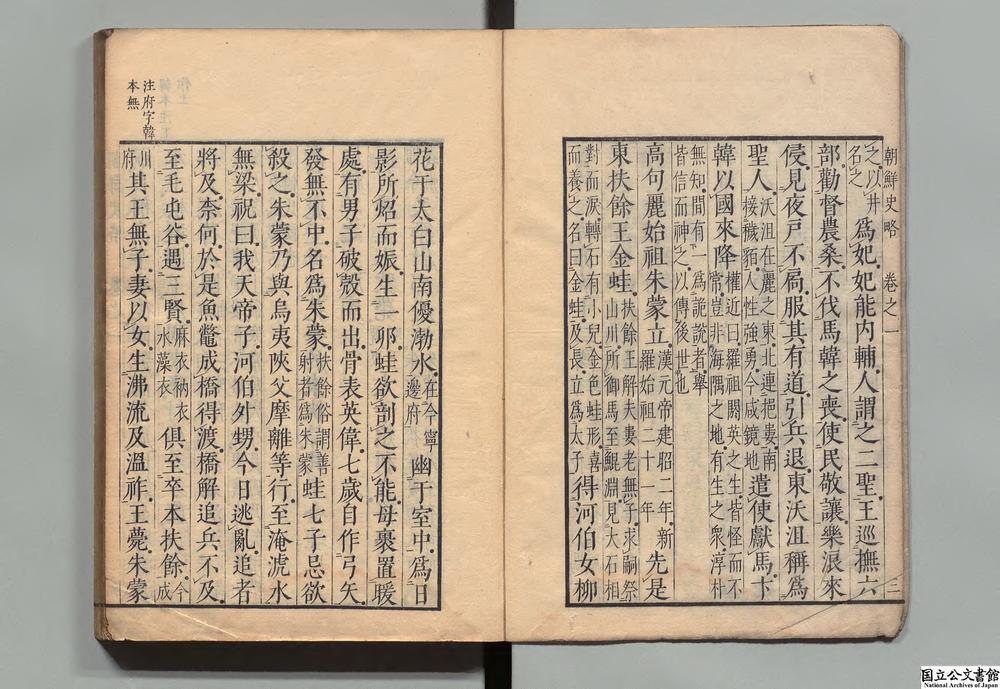 朝鮮史略 卷之一 二
之以井
名之
爲妃妃能内輔人謂之二聖王巡撫六
部勸督農桑不伐馬韓之喪使民敬讓樂浪來
侵見夜戸不扃服其有道引兵退東沃沮稱爲
聖人
沃沮在麗之東北連挹婁南
接穢貊人性強勇今咸鏡地
遣使獻馬卞
韓以國來降
權近曰羅祖閼英之生皆怪而不
常豈非海隅之地有生之衆淳朴
無知間有一爲詭說者舉
皆信而神之以傳後世也
高句麗始祖朱蒙立
漢元帝建昭二年新
羅始祖二十一年
先是
東扶餘王金蛙
扶餘王解夫婁老無子求嗣祭
山川所御馬至鯤淵見大石相
對而淚轉石有小兒金色蛙形喜
而養之名曰金蛙及長立爲太子
得河伯女柳
花于太白山南優渤水
在今寧
邊府
幽于室中爲日
影所炤而娠生一卵蛙欲剖之不能母裹置暖
處有男子破殼而出骨表英偉七歲自作弓矢
發無不中名爲朱蒙
扶餘俗謂善
射者爲朱蒙
蛙七子忌欲
殺之朱蒙乃與烏夷陜父摩離等行至淹淲水
無梁祝曰我天帝子河伯外甥今日逃亂追者
將及柰何於是魚鼈成橋得渡橋解追兵不及
至毛屯谷遇三賢
麻衣衲衣
水藻衣
俱至卒本扶餘
今成
川
府
其王無子妻以女生沸流及溫祚王薨朱蒙
注府字韓
本無